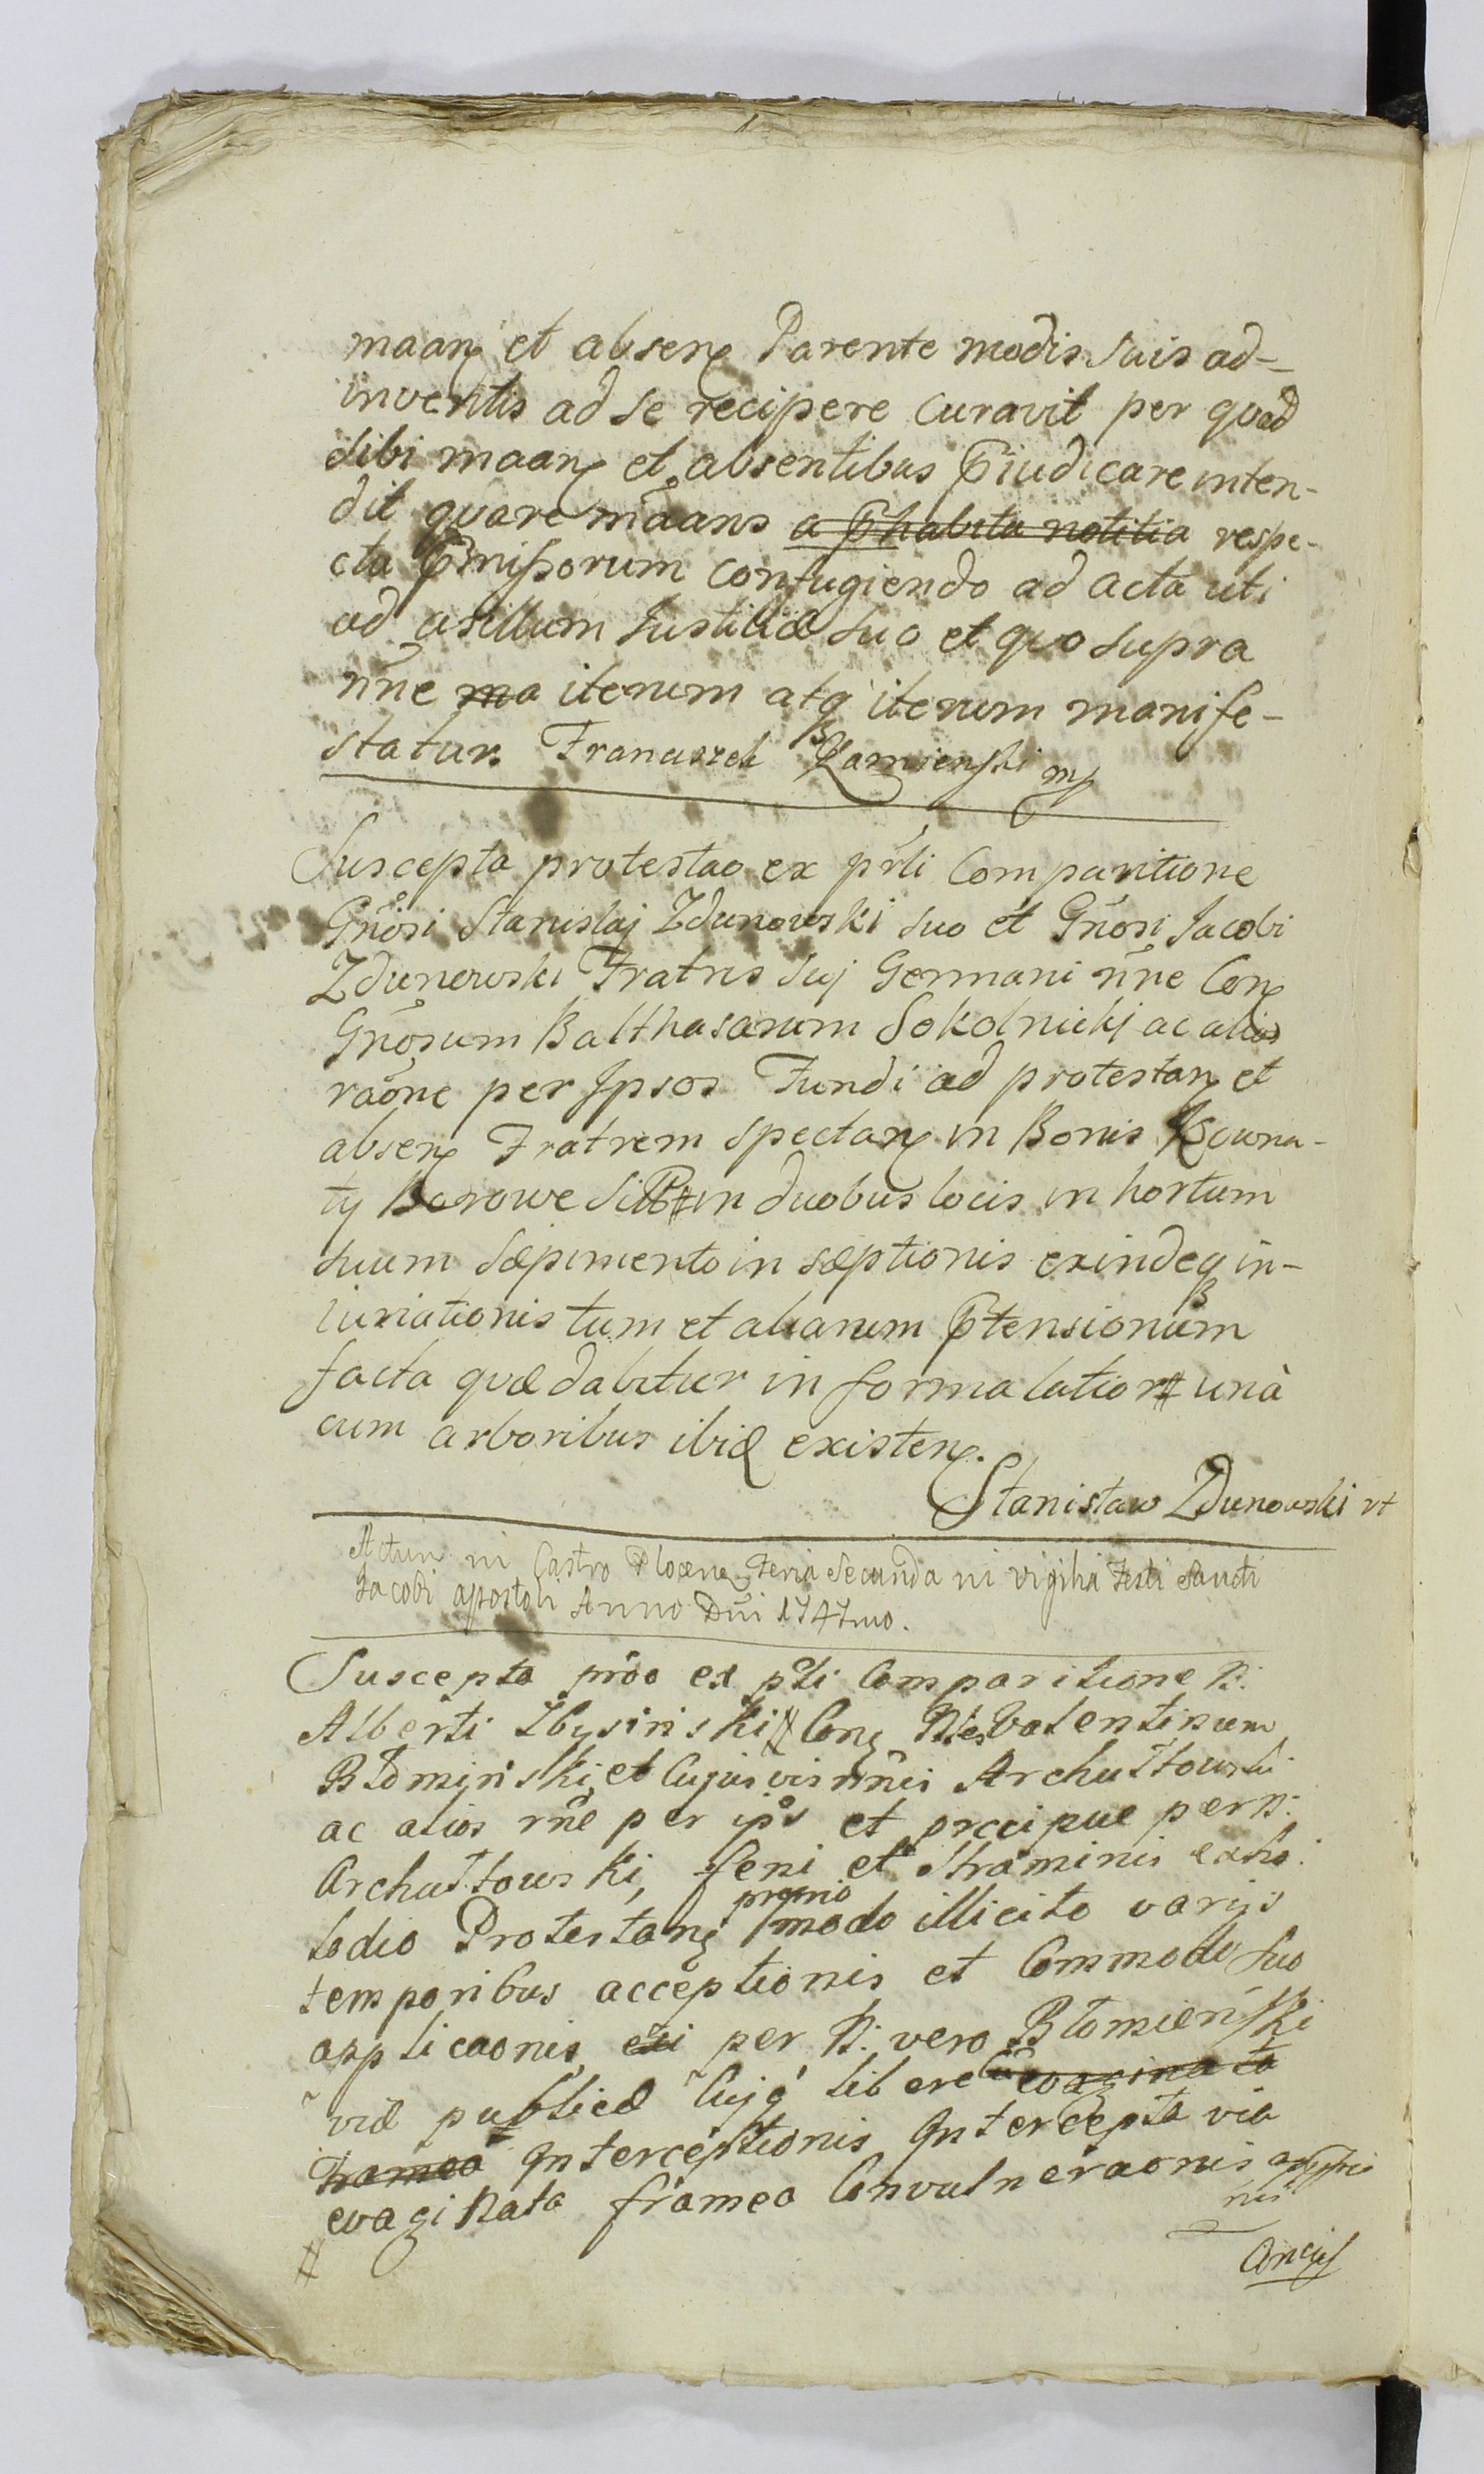 maan et absen Parente modis suis ad-
inventis ad se recipere curavit per quod
sibi maan et absentibus p̄iudicare inten-
dit quare mãans a p̄habita notitia respe-
cta p̄missorum confugiendo ad acta uti
ad asillum Justitiæ suo et quo supra
n̄ne ma iterum atq iterum manife-
statur. Franciszek Kamienski mp
Suscepta protestao ex pr̃li Comparitione
Gn̄osi Stanislaj Zdunowski suo et Gn̄osi Jacobi
Zdunowski Fratris suj Germani n̄ne Con
Gn̄osum Balthasarum Sokolnickj ac alios
raõne per Ipsos Fundi ad protestan et
absen Fratrem spectan in Bonis Kowna-
ty Borowe in duobus locis in hortum
suum sæpimento in sæptionis exindeq in-
iuriationis tum et aliarum p̄tensionum
facta quæ dabitur in forma latiori # unà
cum arboribus ibid existen.
Stanisław Zdunowski
Actum in Castro Plocen Feria Secunda in vigilia Festi Sancti
Jacobi apostoli Anno Dñi 1747mo.
Suscepta prõo ex p̃li Comparitione N:
Alberti Zbysinski Con Nles Valentinum
Błominski et Cujusvis n̄nis Archutowski
ac alios rñe per ipos et præcipue per N:
Archutowski, feni et straminis ex ho:
todio Protestan proprio modo illicito varijs
temporibus acceptionis et Commodo suo
applicaonis, exi per N: vero Błomienski
viæ publicæ Cujq liberæ evaginata
framea Interceptionis Intercepta via
evaginata framea Convulneraonis
nis
#